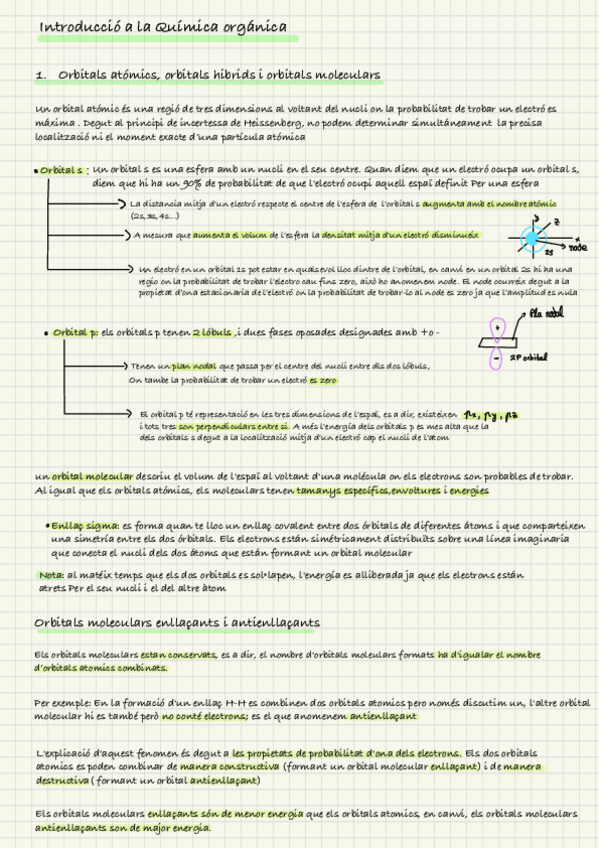 Introducció a la Química orgánica
1. Orbitals atómics, orbitals hibrids i orbitals moleculars
Un orbital atómic és una regió de tres dimensions al voltant del nucli on la probabilitat de trobar un electró es
màxima. Degut al principi de incertessa de Heissenberg, no podem determinar simultáneament la precisa
localització ni el moment exacte d'una partícula atómica
• Orbital s: Un orbital s es una esfera amb un nucli en el seu centre. Quan diem que un electró ocupa un orbital s,
diem que hi ha un 90% de probabilitat de que l'electró ocupi aquell espai definit Per una esfera
La distancia mitja d'un electró respecte el centre de l'esfera de l'orbital s augmenta amb el nombre atómic
(2s,3s,4s...)
A mesura que aumenta el volum de l'esfera la densitat mitja d'un electró disminueix
y
z
x
node
2s
Un electró en un orbital 1s pot estar en qualsevol lloc dintre de l'orbital, en canvi en un orbital 2s hi ha una
regio on la probabilitat de trobar l'electro cau fins zero, això ho anomenem node. El node ocurreix degut a la
propietat d'ona estacionaria de l'electró on la probabilitat de trobar-lo al node es zero ja que l'amplitud es nula
• Orbital p: els orbitals p tenen 2 lóbuls, i dues fases oposades designades amb + o -
Pla nodal
+
-
2P orbital
Tenen un plan nodal que passa per el centre del nucli entre dls dos lóbuls,
On tambe la probabilitat de trobar un electró es zero
El orbital p té representació en les tres dimensions de l'espai, es a dir, existeixen px, py, pz
i tots tres son perpendiculars entre si. A més l'energía dels orbitals p es mes alta que la
dels orbitals s degut a la localització mitja d'un electró cap el nucli de l'atom
un orbital molecular descriu el volum de l'espai al voltant d'una molécula on els electrons son probables de trobar.
Al igual que els orbitals atómics, els moleculars tenen tamanys específics,envoltures i energies
• Enllaç sigma: es forma quan te lloc un enllaç covalent entre dos órbitals de diferentes átoms i que comparteixen
una simetría entre els dos órbitals. Els electrons están simétricament distribuïts sobre una línea imaginaria
que conecta el nucli dels dos átoms que están formant un orbital molecular
Nota: al matéix temps que els dos orbitals es sol·lapen, l'energía es alliberada ja que els electrons están
atrets Per el seu nucli i el del altre àtom
Orbitals moleculars enllaçants i antienllaçants
Els orbitals moleculars estan conservats, es a dir, el nombre d'orbitals moleculars formats ha d'igualar el nombre
d'orbitals atomics combinats.
Per exemple: En la formació d'un enllaç H-H es combinen dos orbitals atomics pero només discutim un, l'altre orbital
molecular hi es també però no conté electrons; es el que anomenem antienllaçant
L'explicació d'aquest fenomen és degut a les propietats de probabilitat d'ona dels electrons. Els dos orbitals
atomics es poden combinar de manera constructiva (formant un orbital molecular enllaçant) i de manera
destructiva ( formant un orbital antienllaçant)
Els orbitals moleculars enllaçants són de menor energia que els orbitals atomics, en canvi, els orbitals moleculars
antienllaçants son de major energia.